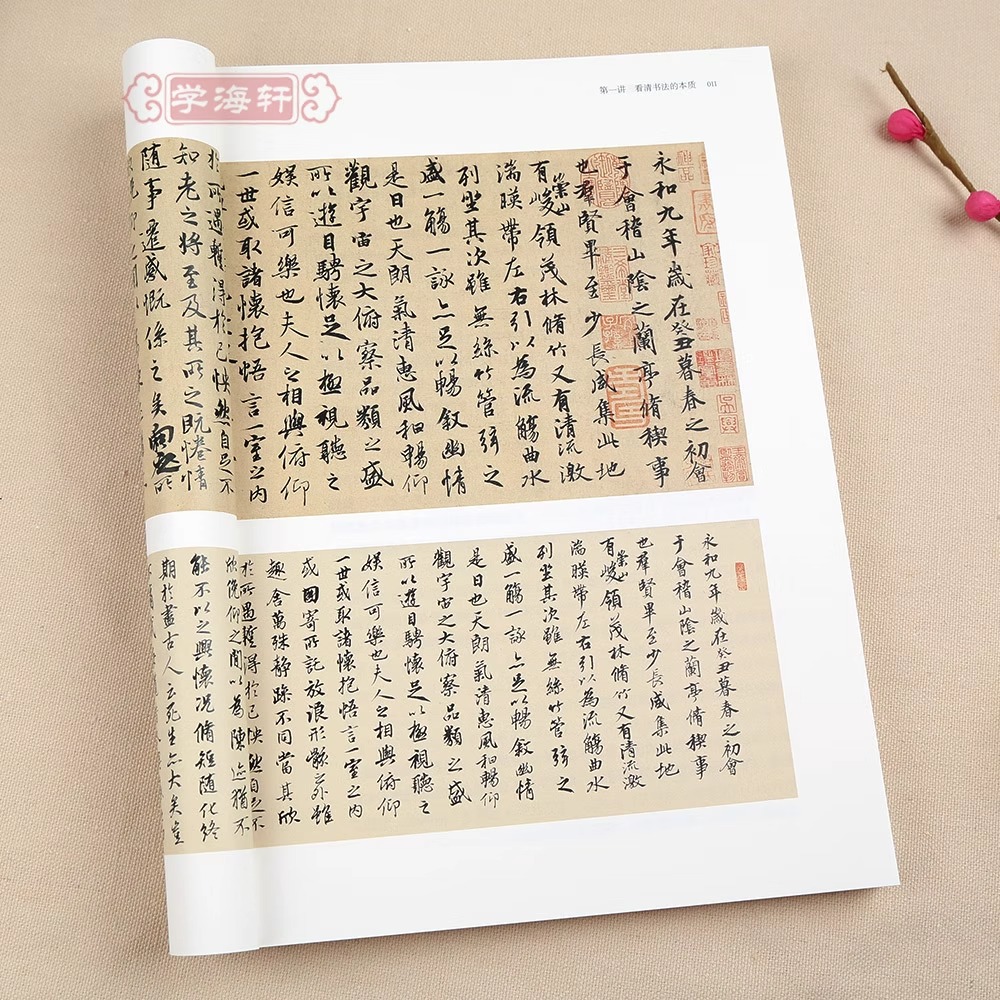 学海轩
第一讲 看清书法的本质 011
永和九年歲在癸丑暮春之初會
于會稽山陰之蘭亭脩稧事
也羣賢畢至少長咸集此地
有崇山峻領茂林脩竹又有清流激
湍暎帶左右引以為流觴曲水
列坐其次雖無絲竹管弦之
盛一觴一詠亦足以暢敘幽情
是日也天朗氣清惠風和暢仰
觀宇宙之大俯察品類之盛
所以遊目騁懷足以極視聽之
娛信可樂也夫人之相與俯仰
一世或取諸懷抱悟言一室之內
於所遇暫得於己怏然自足不
知老之將至及其所之既惓情
隨事遷感慨係之矣向之所
永和九年歲在癸丑暮春之初會
于會稽山陰之蘭亭脩稧事
也羣賢畢至少長咸集此地
有崇山峻領茂林脩竹又有清流激
湍暎帶左右引以為流觴曲水
列坐其次雖無絲竹管弦之
盛一觴一詠亦足以暢敘幽情
是日也天朗氣清惠風和暢仰
觀宇宙之大俯察品類之盛
所以遊目騁懷足以極視聽之
娛信可樂也夫人之相與俯仰
一世或取諸懷抱悟言一室之內
或因寄所託放浪形骸之外雖
趣舍萬殊靜躁不同當其欣
於所遇暫得於己怏然自足不
欣俛仰之間以為陳迹猶不
能不以之興懷況脩短隨化終
期於盡古人云死生亦大矣豈